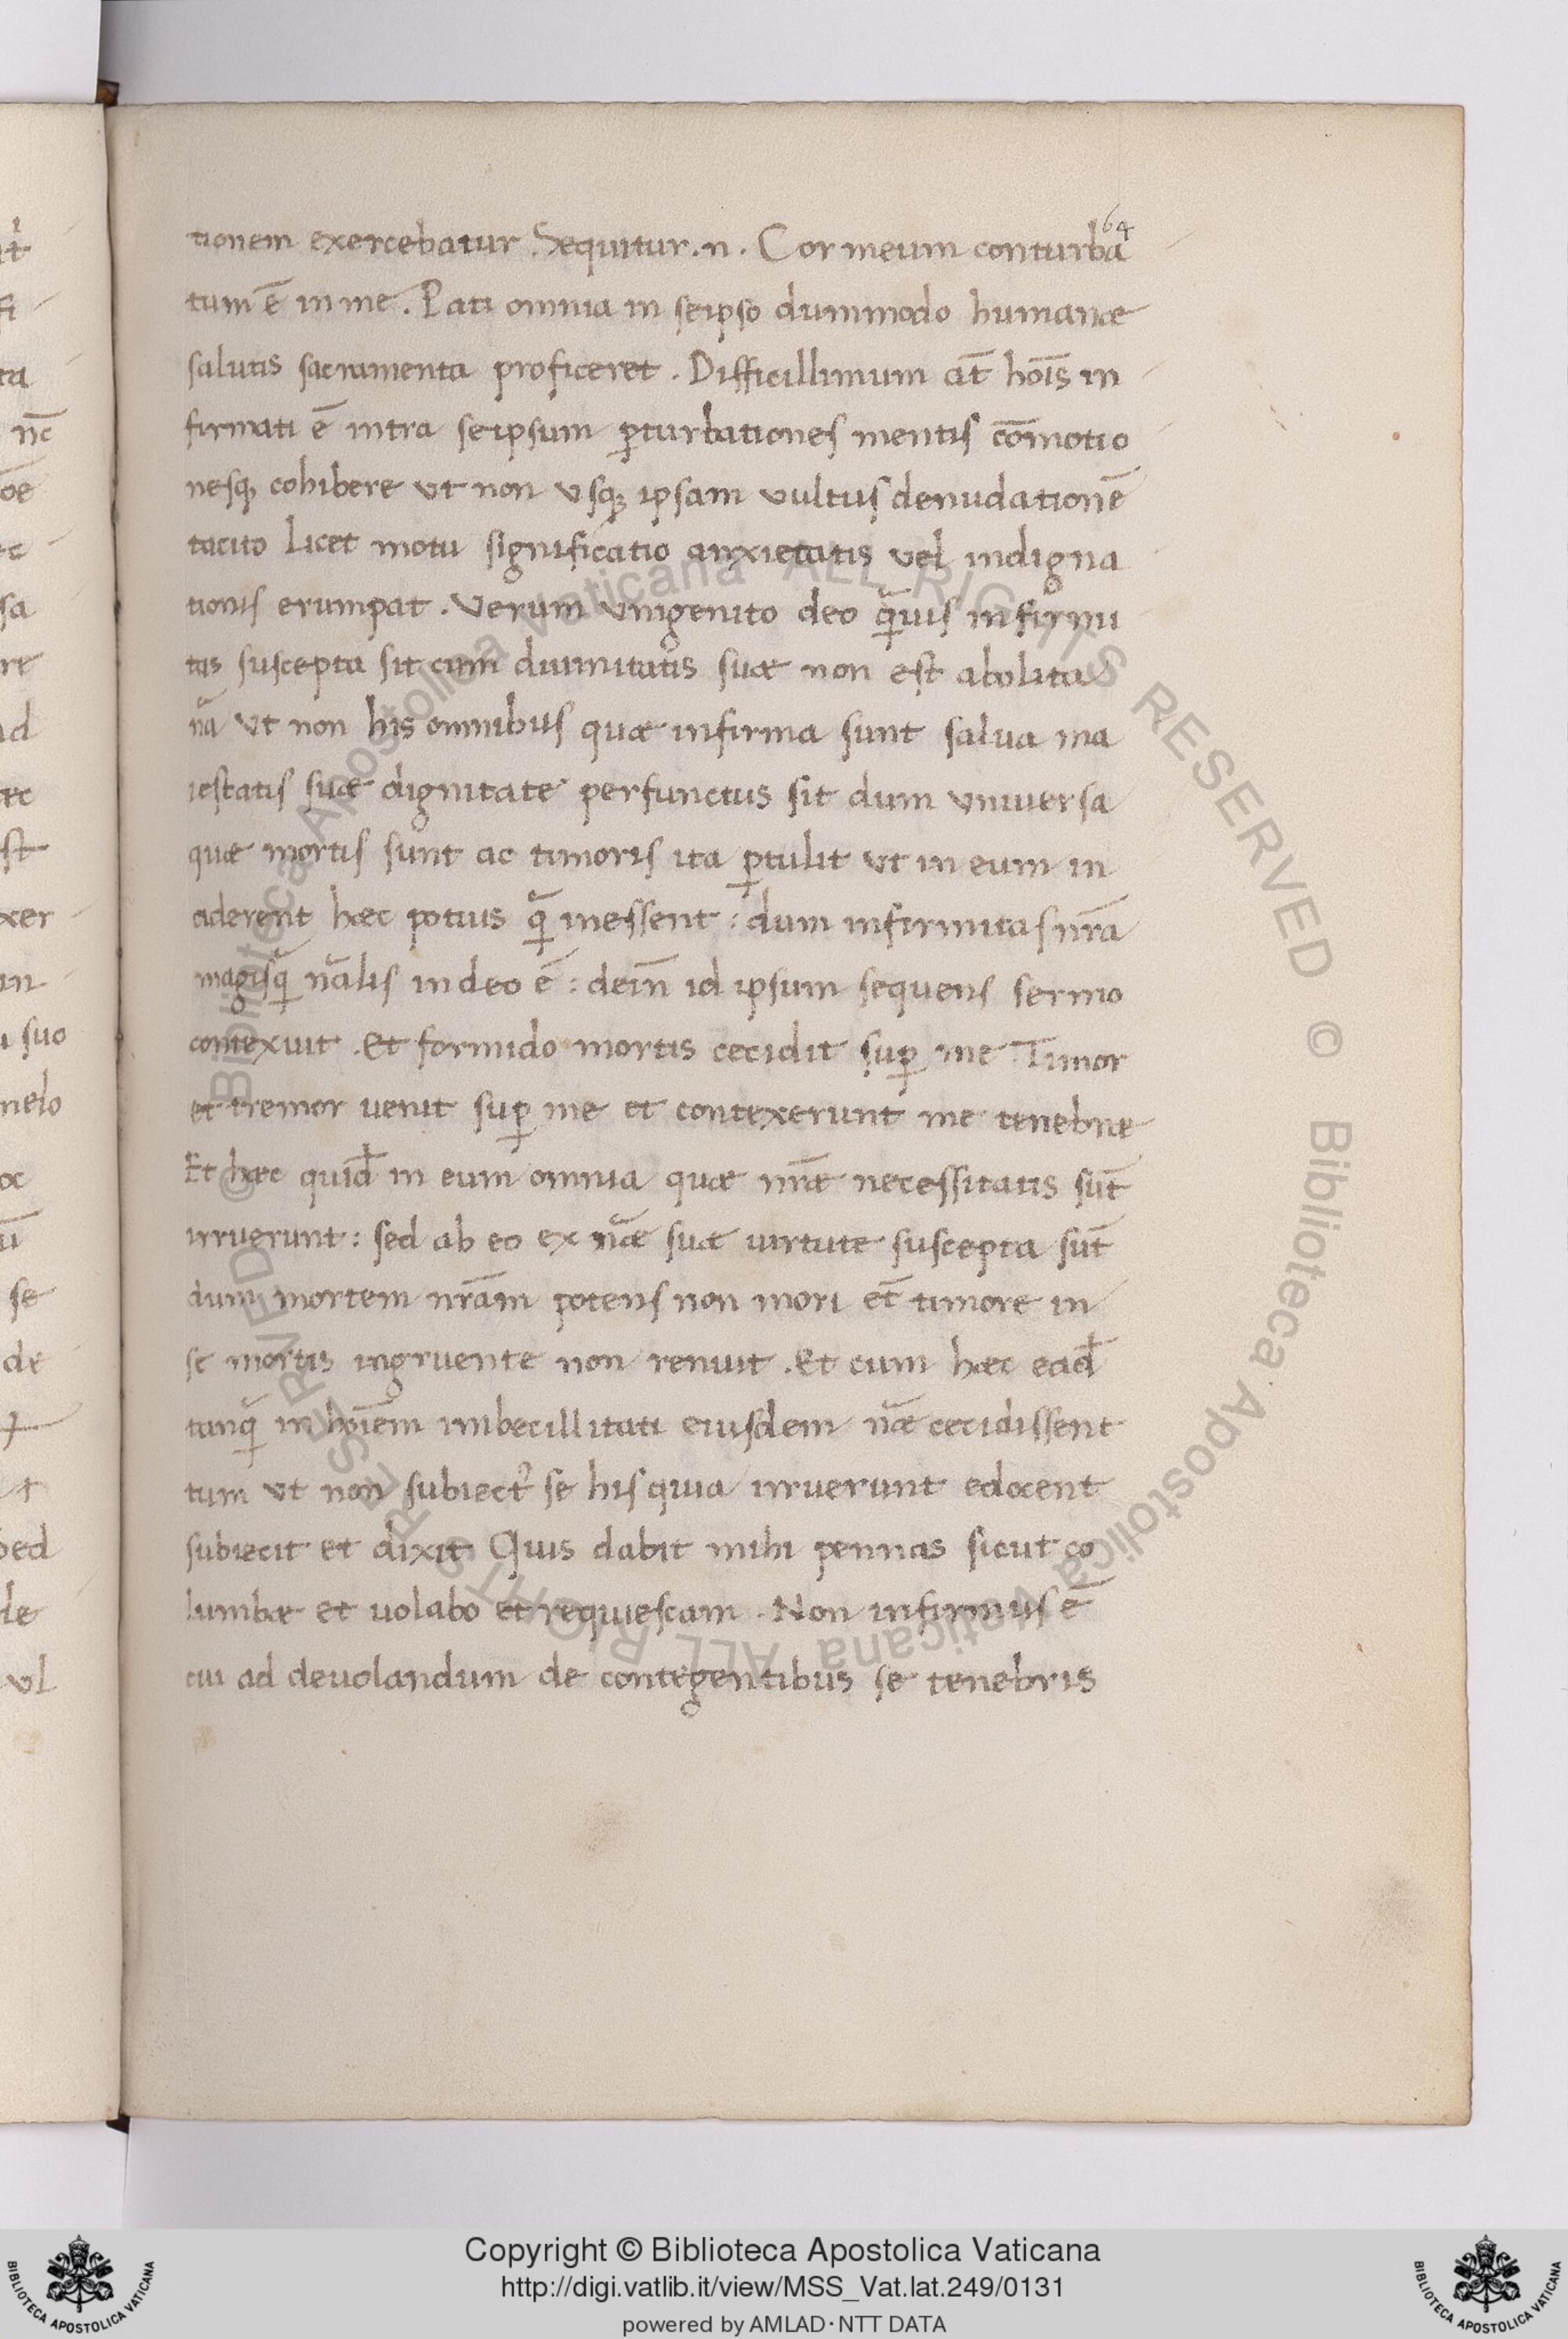 64
tionem exercebatur. Sequitur .n. Cor meum conturba
tum ē in me. Pati omnia in seipso dummodo humanæ
salutis sacramenta proficeret. Difficillimum aūt hoīs in
firmati ē intra seipsum ꝑturbationes mentis cōmotio
nesqꝫ cohibere vt non vsqꝫ ipsam vultus denudationē
tacito licet motu significatio anxietatis vel indigna
tionis erumpat. Verum vnigenito deo q̃uis infirmi
tas suscepta sit cum diuinitatis suæ non est abolita
nã vt non his omnibus quæ infirma sunt salua ma
iestatis suæ dignitate perfunctus sit dum vniuersa
quæ mortis sunt ac timoris ita ꝑtulit vt in eum in
aderent hæc potius q̃ inessent: dum infirmitas nr̄a
magisq̃ nãlis in deo ē: dein̄ id ipsum sequens sermo
contexuit. Et formido mortis cecidit suꝑ me Timor
et tremor uenit suꝑ me et contexerunt me tenebræ
Et hæc quid̄ in eum omnia quæ nr̄æ necessitatis sūt
irruerunt: sed ab eo ex nãe suæ uirtute suscepta sūt
dum mortem nr̄am potens non mori et̄ timore in
se mortis ingruente non renuit. Et cum hæc ead̄
tanq̃ in hoīem imbecillitati eiusdem nãe cecidissent
tum vt non subiect᾽ se his quia irruerunt edocent
subiecit et dixit Quis dabit mihi pennas sicut co
lumbæ et uolabo et requiescam. Non infirmus ē
cui ad deuolandum de contegentibus se tenebris
© Biblioteca Apostolica Vaticana ALL RIGHTS RESERVED © Biblioteca Apostolica Vaticana ALL RIGHTS RESERVED
Copyright © Biblioteca Apostolica Vaticana
http://digi.vatlib.it/view/MSS_Vat.lat.249/0131
powered by AMLAD·NTT DATA
BIBLIOTECA APOSTOLICA VATICANA
BIBLIOTECA APOSTOLICA VATICANA